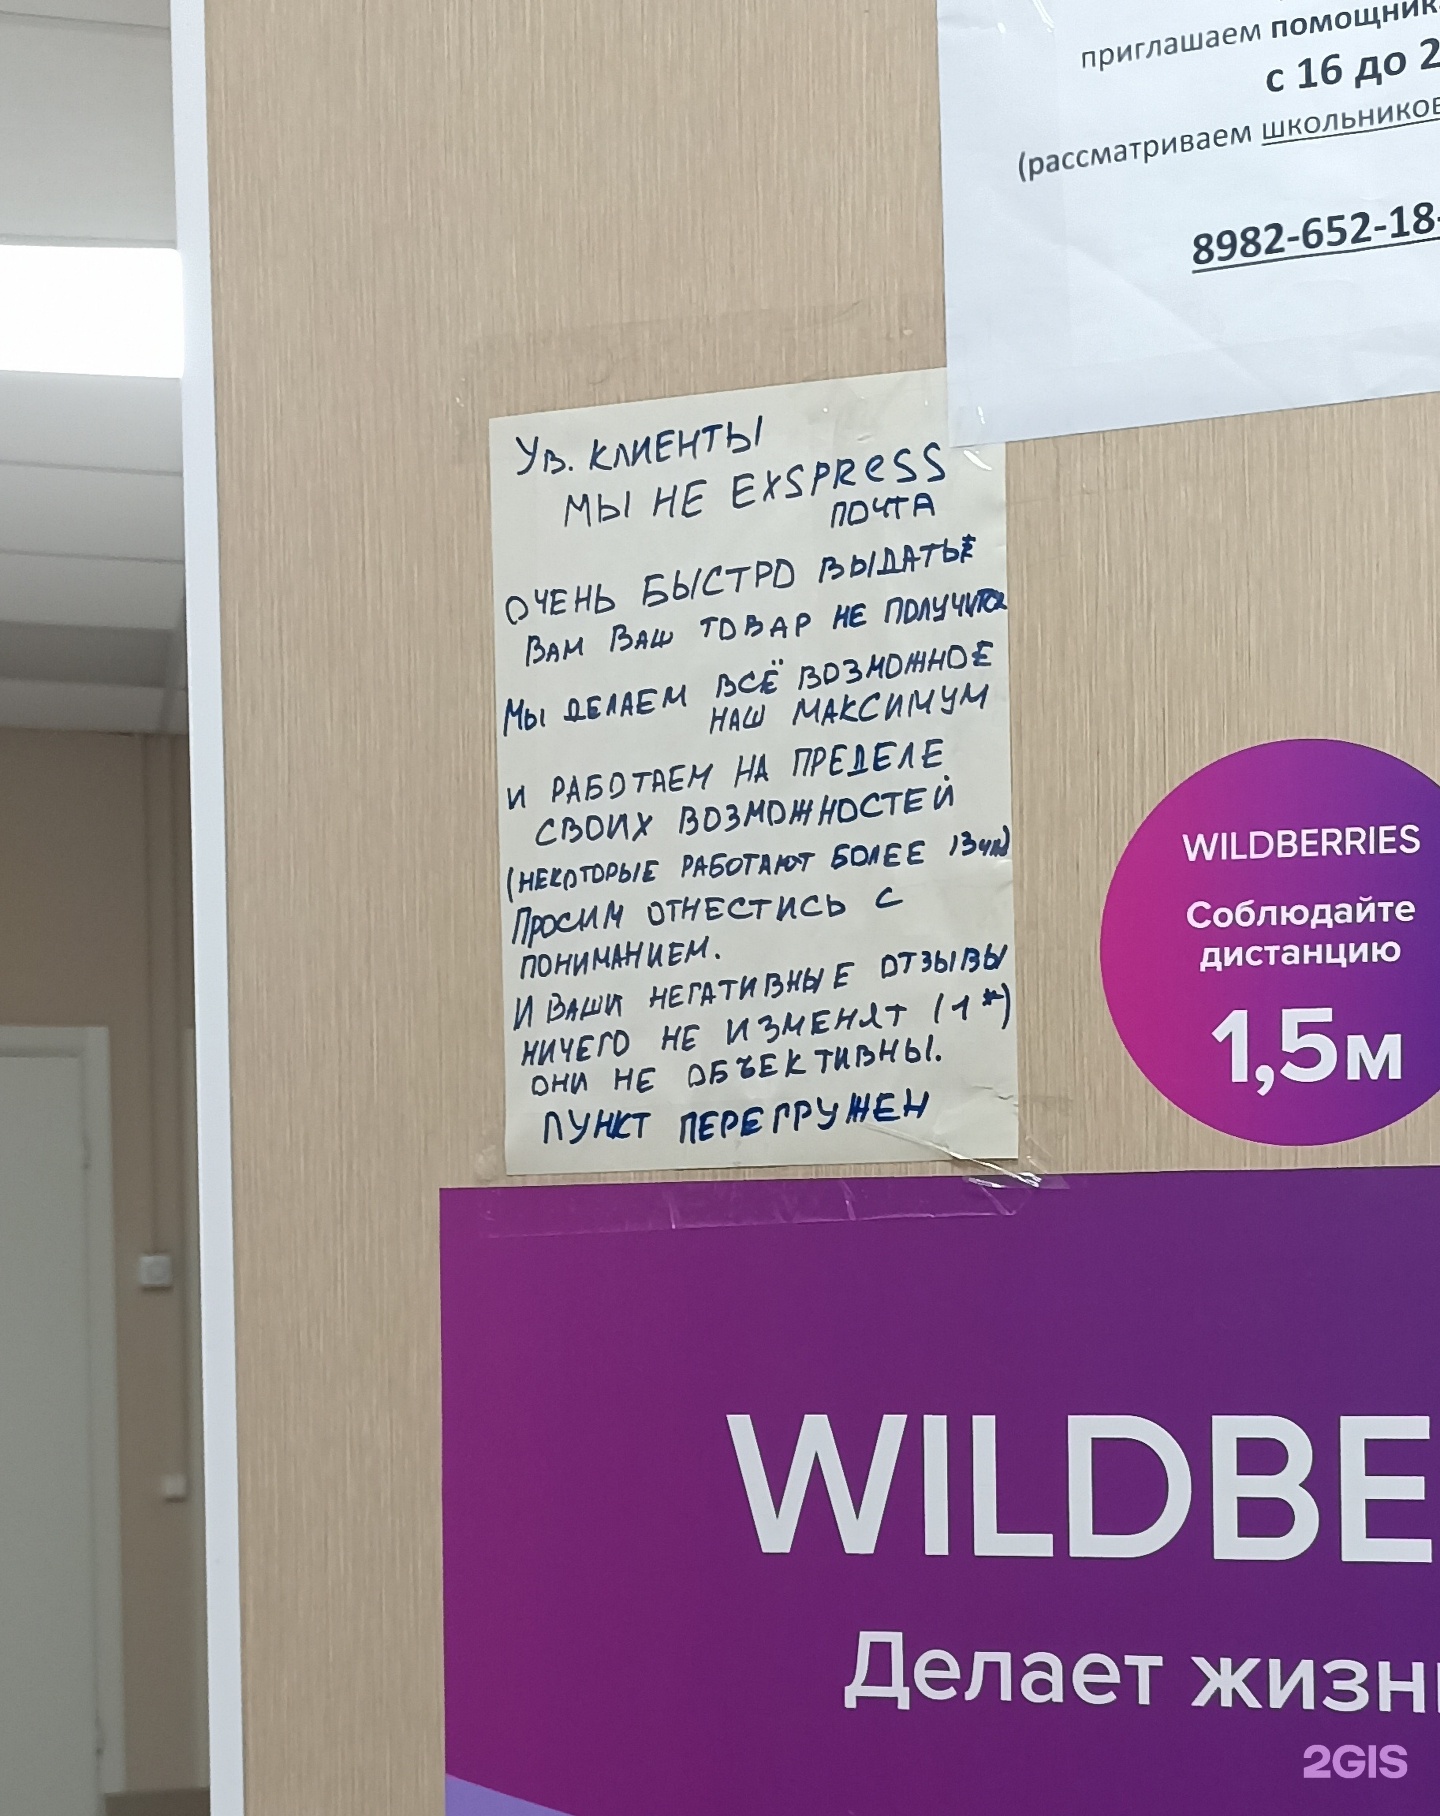 приглашаем помощник
с 16 до 2
(рассматриваем школьников
8982-652-18-
Ув. клиенты
мы не EXSPRESS
почта
очень быстро выдать
вам ваш товар не получится
Мы делаем всё возможное
наш максимум
и работаем на пределе
своих возможностей
(некоторые работают более 13 
Просим отнестись с
пониманием.
И ваши негативные отзывы
ничего не изменят (1*)
они не объективны.
пункт перегружен
WILDBERRIES
Соблюдайте
дистанцию
1,5м
WILDBE
Делает жизн
2GIS